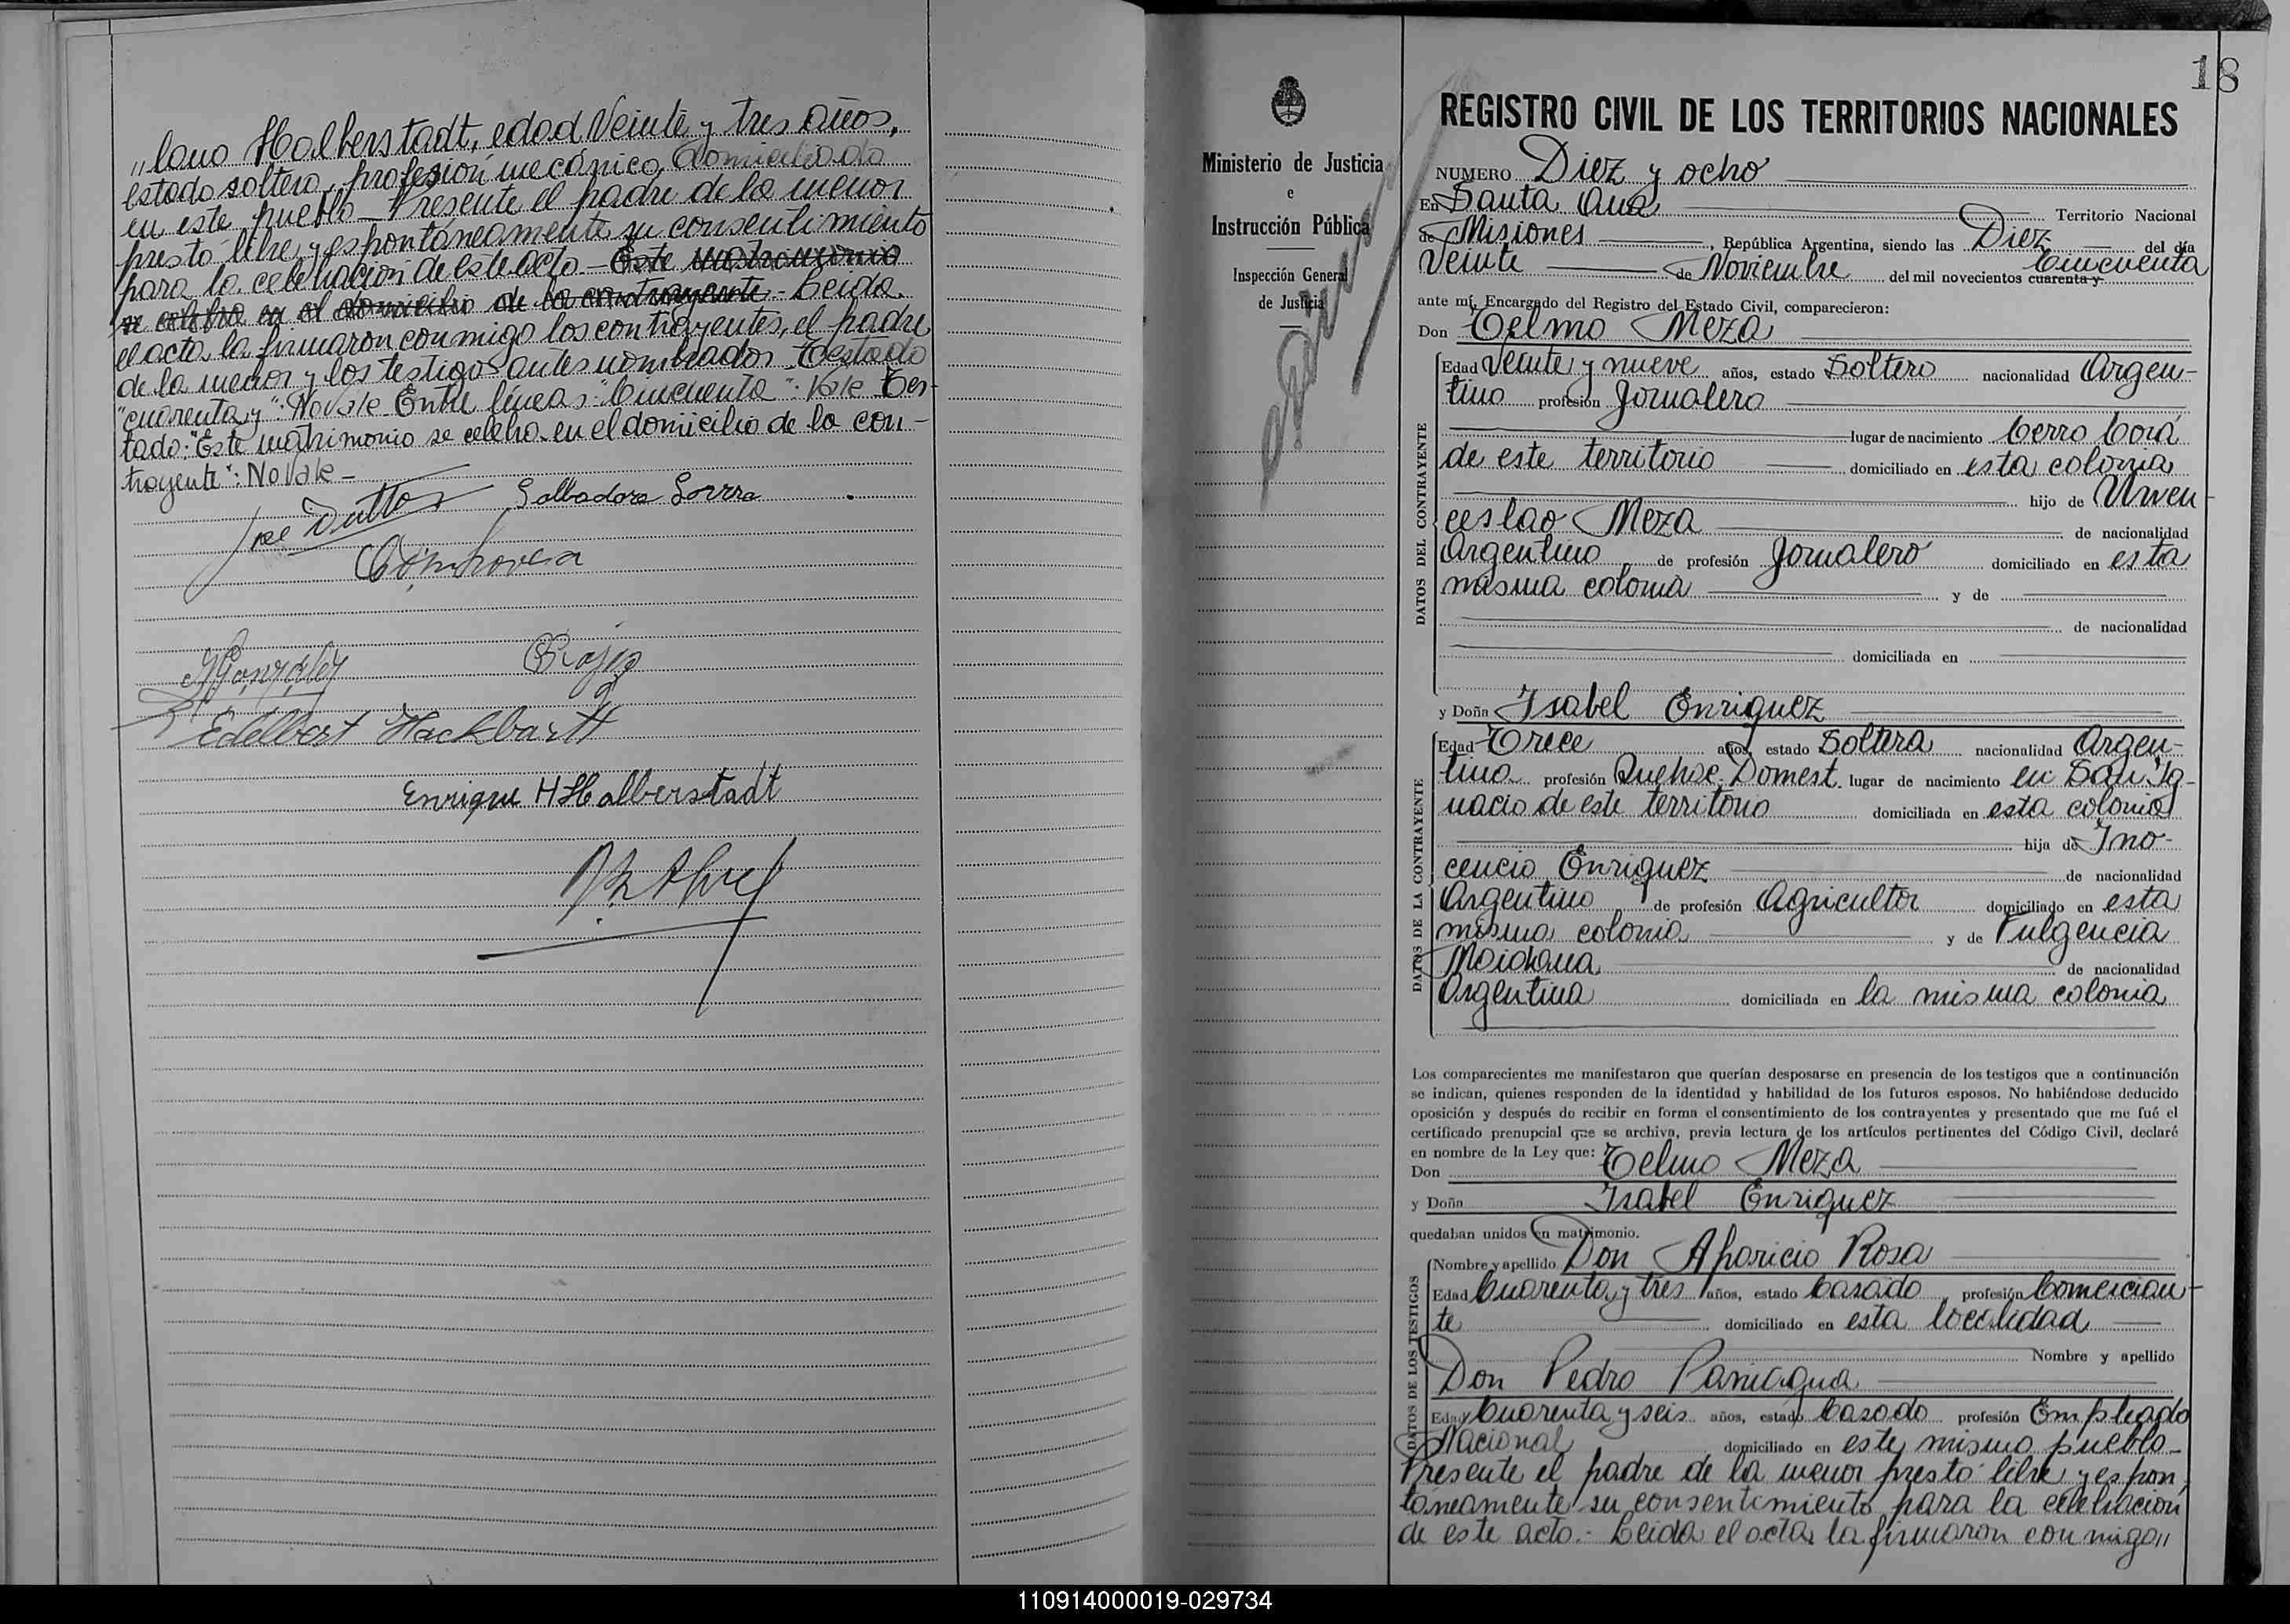 "lano Halberstadt, edad Veinte y tres años,
estado soltero, profesión mecánico, domiciliado
en este pueblo - Presente el padre de la menor
prestó libre y espontáneamente su consentimiento
para la celebración de este acto. - Este matrimonio
se celebra en el domicilio de la contrayente - Leida
el acta, la firmaron conmigo los contrayentes, el padre
de la menor y los testigos antes nombrados. Testado
"cuarenta y": No vale. Entre líneas: "Cincuenta": Vale. Tes-
tado: "Este matrimonio se celebra en el domicilio de la con-
trayente": No vale -
Salbadora
Edelbert Hackbartt
Enrique H Halberstadt
18
Ministerio de Justicia
e
Instrucción Pública
Inspección General
de Justicia
REGISTRO CIVIL DE LOS TERRITORIOS NACIONALES
NUMERO Diez y ocho
En Santa Ana Territorio Nacional
de Misiones, República Argentina, siendo las Diez del día
Veinte de Noviembre del mil novecientos cuarenta y Cincuenta
ante mí, Encargado del Registro del Estado Civil, comparecieron:
Don Telmo Meza
DATOS DEL CONTRAYENTE
Edad Veinte y nueve años, estado Soltero nacionalidad Argen-
tino profesión Jornalero
lugar de nacimiento Cerro Corá
de este territorio domiciliado en esta colonia
hijo de Wen
ceslao Meza de nacionalidad
Argentino de profesión Jornalero domiciliado en esta
misma colonia y de
de nacionalidad
domiciliada en
y Doña Isabel Enriquez
DATOS DE LA CONTRAYENTE
Edad Trece años, estado Soltera nacionalidad Argen-
tina profesión Quehac. Domest. lugar de nacimiento en San Ig-
nacio de este territorio domiciliada en esta colonia
hija de Ino-
cencio Enriquez de nacionalidad
Argentino de profesión Agricultor domiciliado en esta
misma colonia y de Fulgencia
Maidana de nacionalidad
Argentina domiciliada en la misma colonia
Los comparecientes me manifestaron que querían desposarse en presencia de los testigos que a continuación
se indican, quienes responden de la identidad y habilidad de los futuros esposos. No habiéndose deducido
oposición y después de recibir en forma el consentimiento de los contrayentes y presentado que me fué el
certificado prenupcial que se archiva, previa lectura de los artículos pertinentes del Código Civil, declaré
en nombre de la Ley que:
Don Telmo Meza
y Doña Isabel Enriquez
quedaban unidos en matrimonio.
DATOS DE LOS TESTIGOS
Nombre y apellido Don Aparicio Rosa
Edad Cuarenta y tres años, estado Casado profesión Comercian-
te domiciliado en esta localidad
Nombre y apellido
Don Pedro Paniagua
Edad Cuarenta y seis años, estado Casado profesión Empleado
Nacional domiciliado en este mismo pueblo -
Presente el padre de la menor prestó libre y espon-
táneamente su consentimiento para la celebración
de este acto. - Leida el acta, la firmaron conmigo"
110914000019-029734